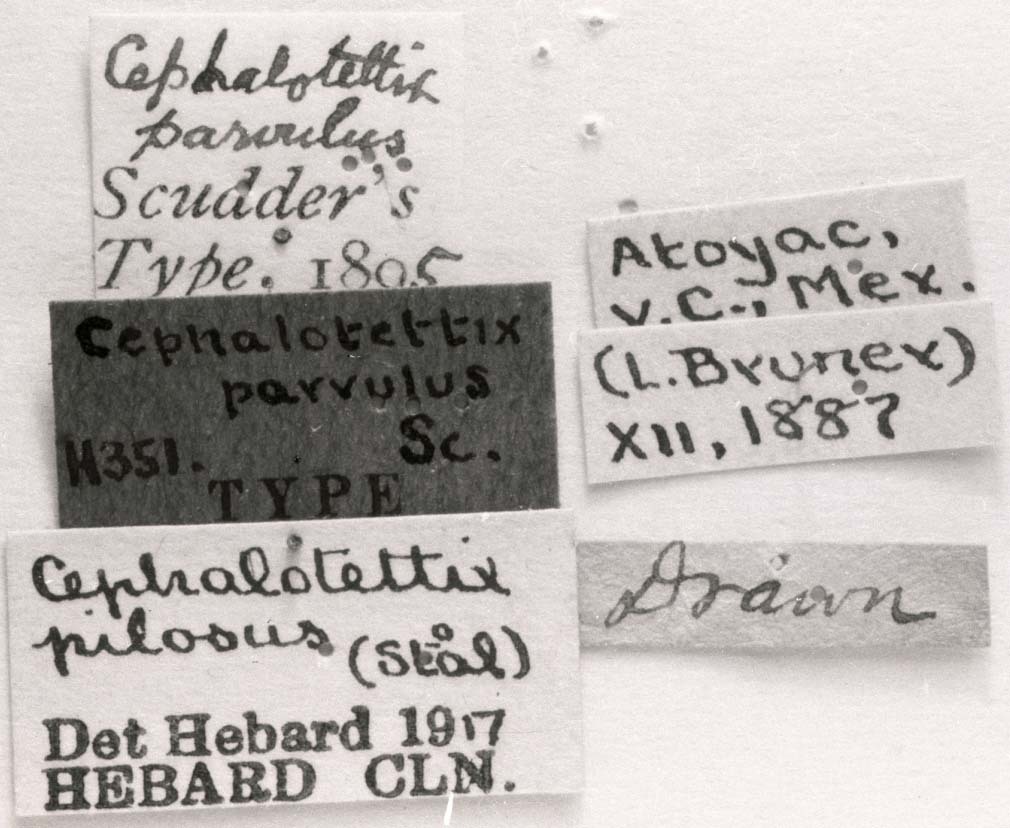 Cephalotettix
parvulus
Scudder's
Type. 1895
Cephalotettix
parvulus
Sc.
H351.
TYPE
Cephalotettix
pilosus (Stål)
Det Hebard 1917
HEBARD CLN.
Atoyac,
V.C., Mex.
(L. Bruner)
XII, 1887
Drawn